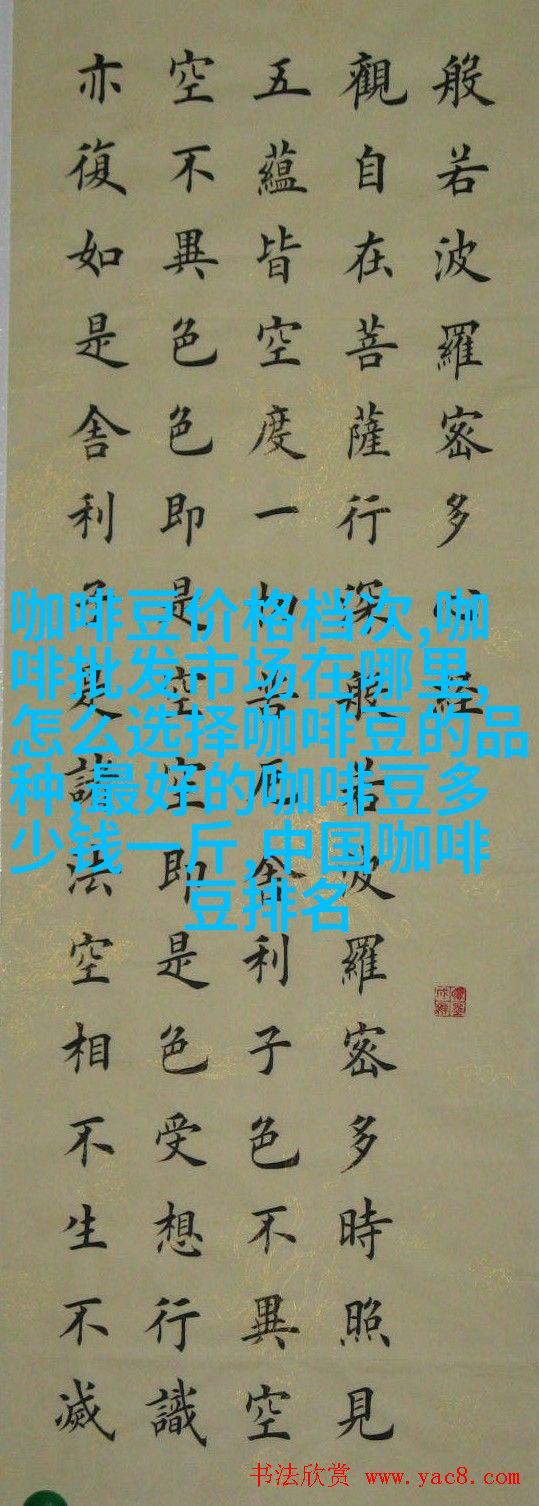 般若波羅密多心經
觀自在菩薩行深般若波羅密多時照見
五蘊皆空度一切苦厄舍利子色不異空
空不異色色即是空空即是色受想行識
亦復如是舍利子是諸法空相不生不滅
咖啡豆价格档次,咖
啡批发市场在哪里,
怎么选择咖啡豆的品
种,最好的咖啡豆多
少钱一斤,中国咖啡
豆排名
书法欣赏 www.yac8.com